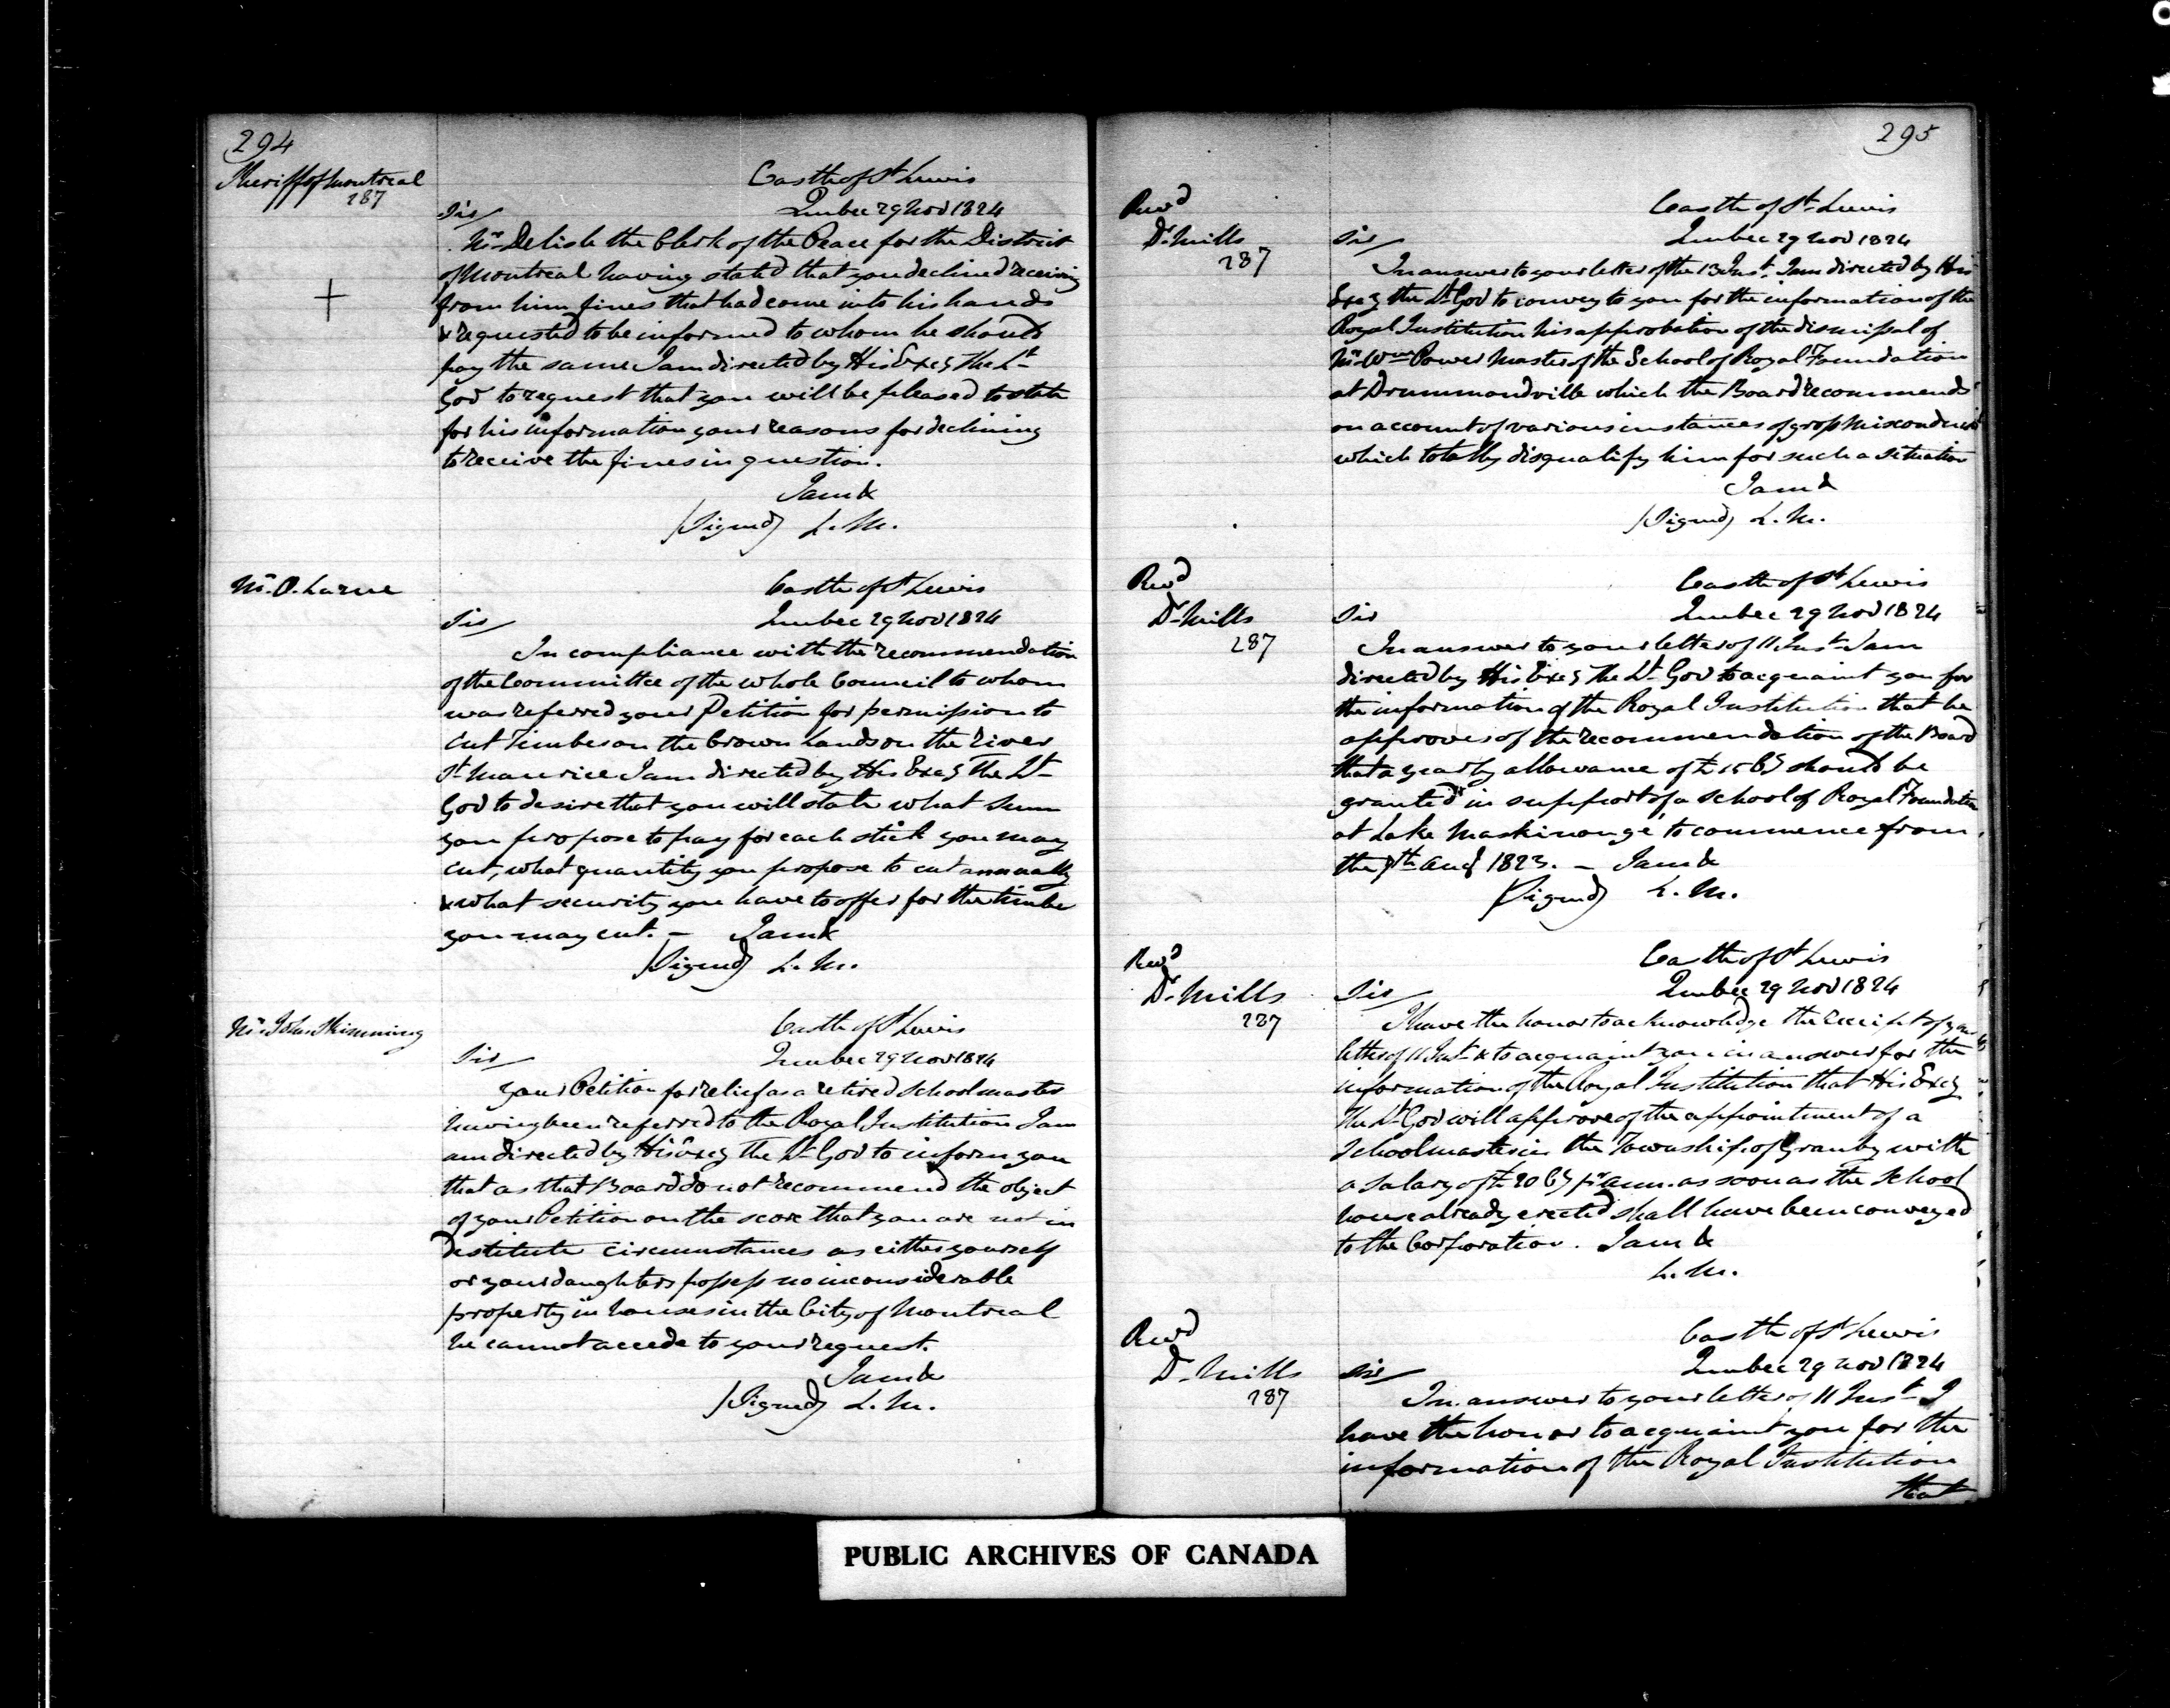 294
Sheriff of Montreal
287
Castle of St Lewis
Quebec 29 Nov 1824
Sir/
Mr Delisle the Clerk of the Peace for the District
of Montreal having stated that you declined receiving
from him fines that had come into his hands
& requested to be informed to whom he should
pay the same I am directed by His Excy the Lt
Gov to request that you will be pleased to state
for his information your reasons for declining
to receive the fines in question.
I am &
(Signed) L. M.
Mr. O. Larue
Castle of St Lewis
Quebec 29 Nov 1824
Sir/
In compliance with the recommendation
of the Committee of the whole Council to whom
was referred your Petition for permission to
cut Timber on the Crown Lands on the River
St Maurice I am directed by His Excy The Lt
Gov to desire that you will state what sum
you propose to pay for each stick you may
cut, what quantity you propose to cut annually
& what security you have to offer for the timber
you may cut. — I am &
(Signed) L. M.
Mr John Skimming
Castle of St Lewis
Quebec 29 Nov 1824
Sir/
Your Petition for relief as a retired Schoolmaster
having been referred to the Royal Institution I am
am directed by His Excy the Lt Gov to inform you
that as that Board do not recommend the object
of your Petition on the score that you are not in
destitute circumstances as either yourself
or your daughters possess no inconsiderable
property in houses in the City of Montreal
he cannot accede to your request.
I am &
(Signed) L. M.
295
Revd
Dr Mills
287
Castle of St Lewis
Quebec 29 Nov 1824
Sir/
In answer to your letter of the 13 Inst. I am directed by His
Excy the Lt Gov to convey to you for the information of the
Royal Institution his approbation of the dismissal of
Mr Wm Power Master of the School of Royal Foundation
at Drummondville which the Board recommends
on account of various instances of gross misconduct
which totally disqualify him for such a situation
I am &
(Signed) L. M.
Revd
Dr Mills
287
Castle of St Lewis
Quebec 29 Nov 1824
Sir
In answer to your letter of 11 Inst I am
directed by His Excy The Lt Gov to acquaint you for
the information of the Royal Institution that he
approves of the recommendation of the Board
that a yearly allowance of £ 15 Cy should be
granted in support of a school of Royal Foundation
at Lake Maskinongé, to commence from
the 7th Aug 1823. — I am &
(Signed) L. M.
Revd
Dr Mills
287
Castle of St Lewis
Quebec 29 Nov 1824
Sir/
I have the honor to acknowledge the receipt of your
letter of 11 Inst & to acquaint you in answer for the
information of the Royal Institution that His Excy
The Lt Gov will approve of the appointment of a
Schoolmaster in the Township of Granby with
a Salary of £ 20 Cy pr ann. as soon as the School
house already erected shall have been conveyed
to the Corporation. I am &
L. M.
Revd
Dr Mills
287
Castle of St Lewis
Quebec 29 Nov 1824
Sir/
In answer to your letter of 11 Inst I
have the honor to acquaint you for the
information of the Royal Institution
that
PUBLIC ARCHIVES OF CANADA